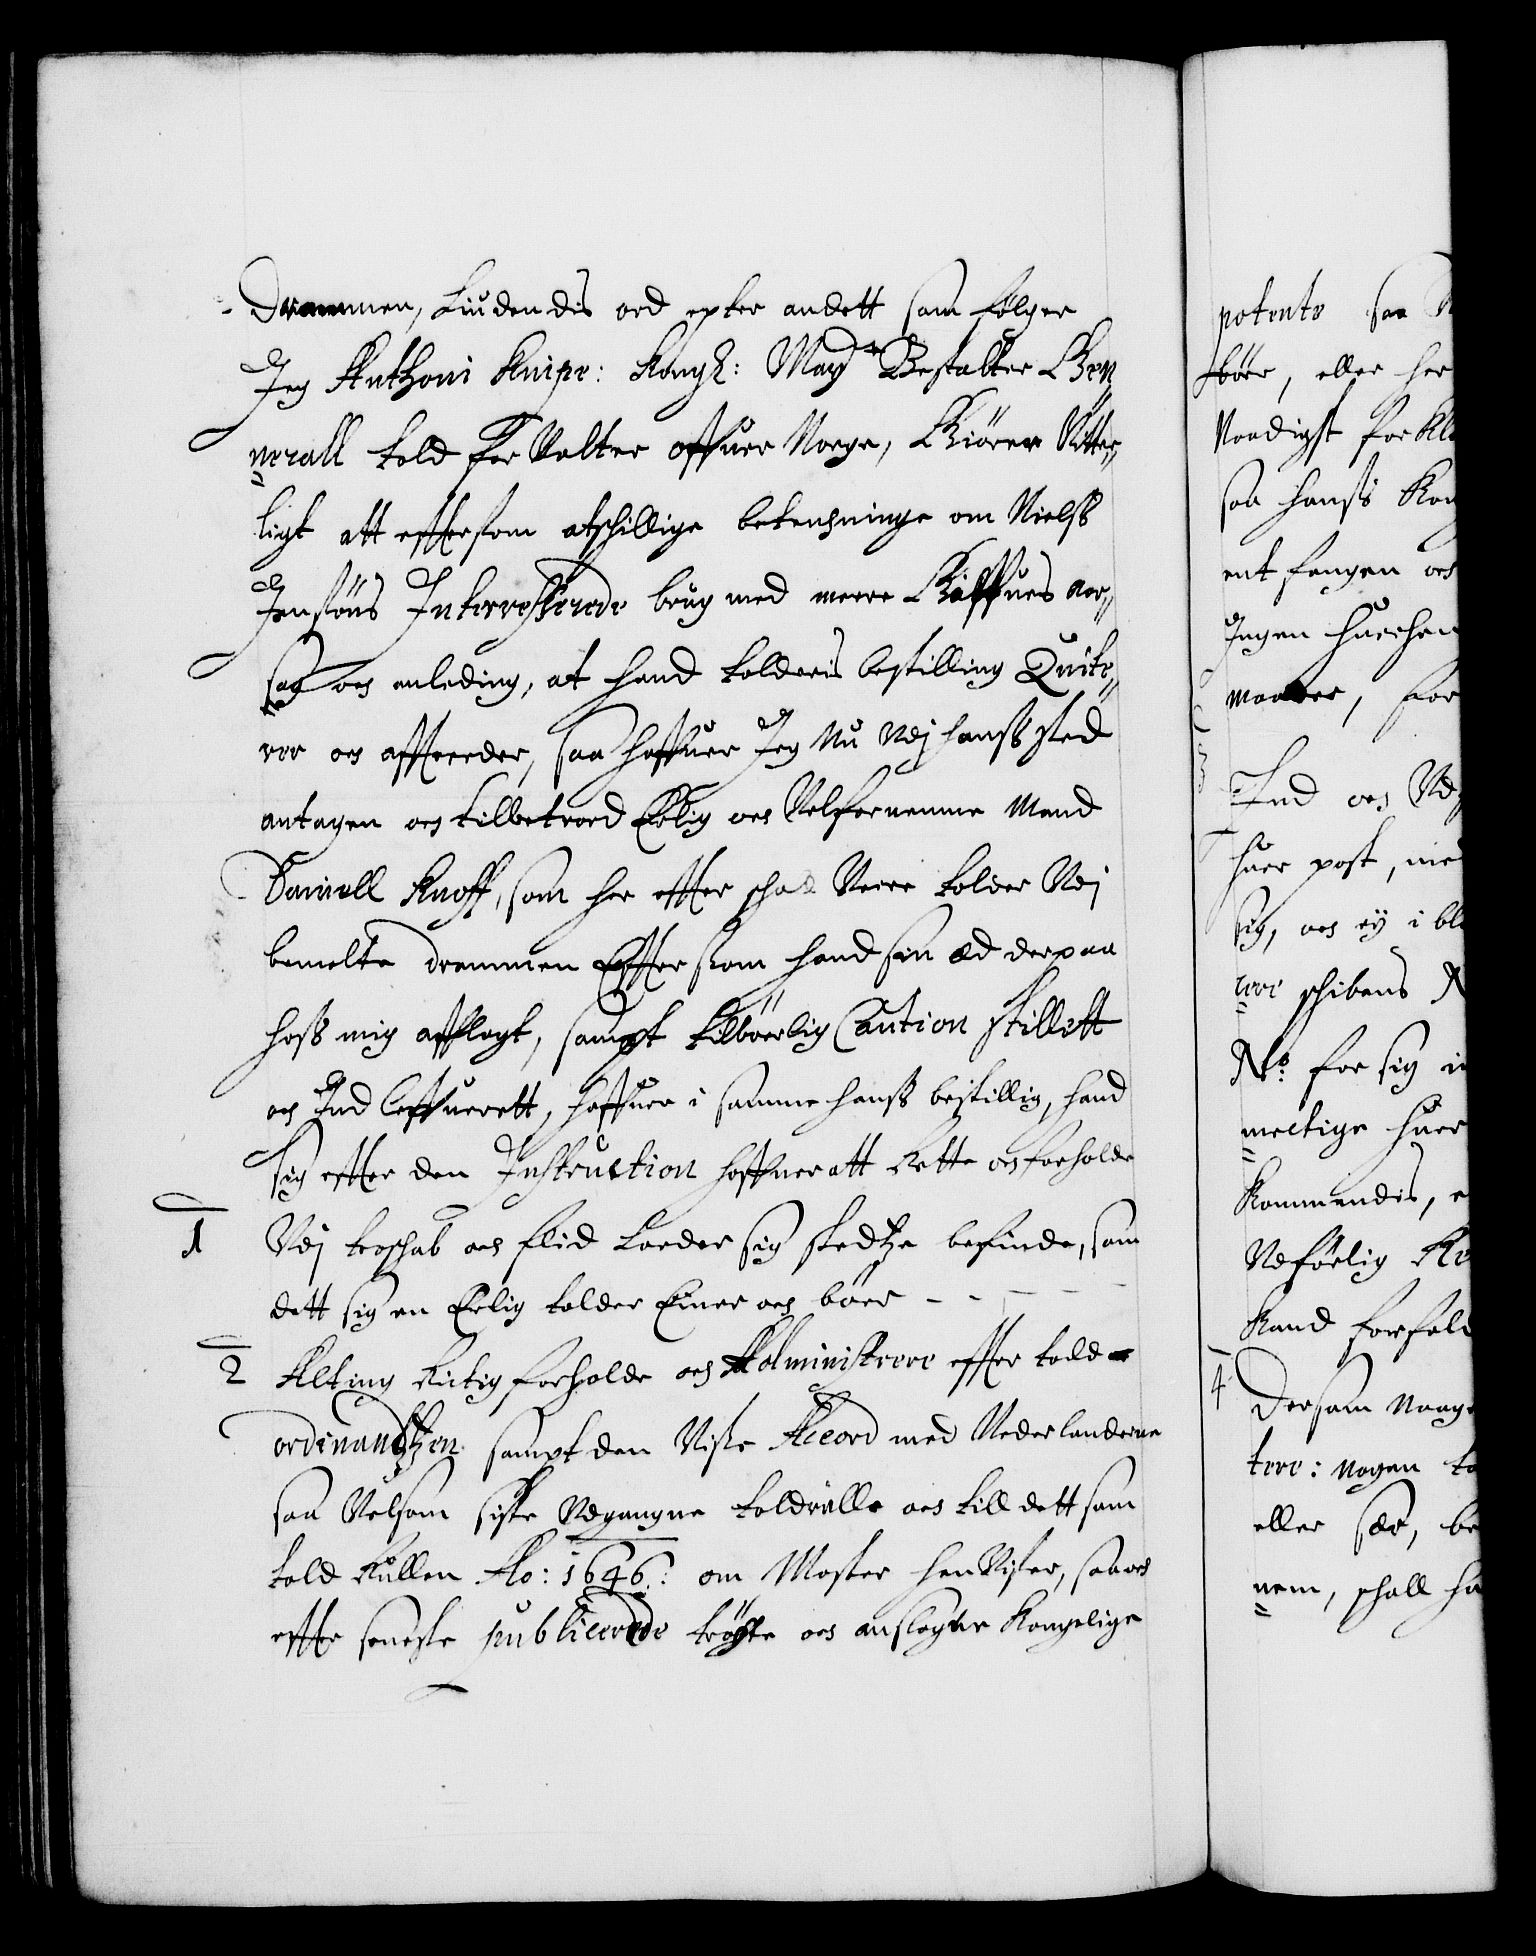 Drammen, Liudendis ord epter andett som følger
Jeg Anthoni Knipe: Kongl: Mayts Bestalter Gen„
nerall told for Valter offuer Norge, Giörer Vitter„
ligt att efftersom atschillige betenchninge om Nielss
Jensöns Interresserede brug med meere Giffues aar„
sag och anleding, at hand tolderis bestilling Quite„
rer och afftreeder, saa haffuer Jeg Nu Vdj hanss sted
antagen och tilbetroed Erlig och Velfornemme Mand
Daniell Knoff, som her effter schal Verre tolder Vdj
bemelte Drammen Effter som hand sin æd derpaa
hoss mig afflagt, sampt tilbörlig Caution stillett
och Ind leffuerett, haffuer i samme hanss bestillig, hand
sig effter den Instruction haffuer att Rette och forholde
1 Vdj troschab och flid Lader sig stedtze befinde, som
dett sig en Erlig tolder Einer och böer - - - -
2 Alting Rictig forholde och Administrere effter told
ordinandtzen sampt den Viste Accord med Nederlanderne
saa Velsom siste Vdgangne toldrulle och till dett som
told Rullen Ao: 1646: om Master hen Viser, saa och
effter seneste publicerede tröchte och anslagne Kongelige
potente saa
böer, eller her
Naadigst for Kla
saa hanss Kon
entfangen och
Ingen huerchen
maader, for
Ind och Vd
huer post, med
sig, och ej i bl
rere schibens N
No: for sig in
mectige huer
Kommendis, e
Vdförlig Re
Kand forfal
4 Dersom Noage
tere: nogen to
eller sær, be
nem, schall ha